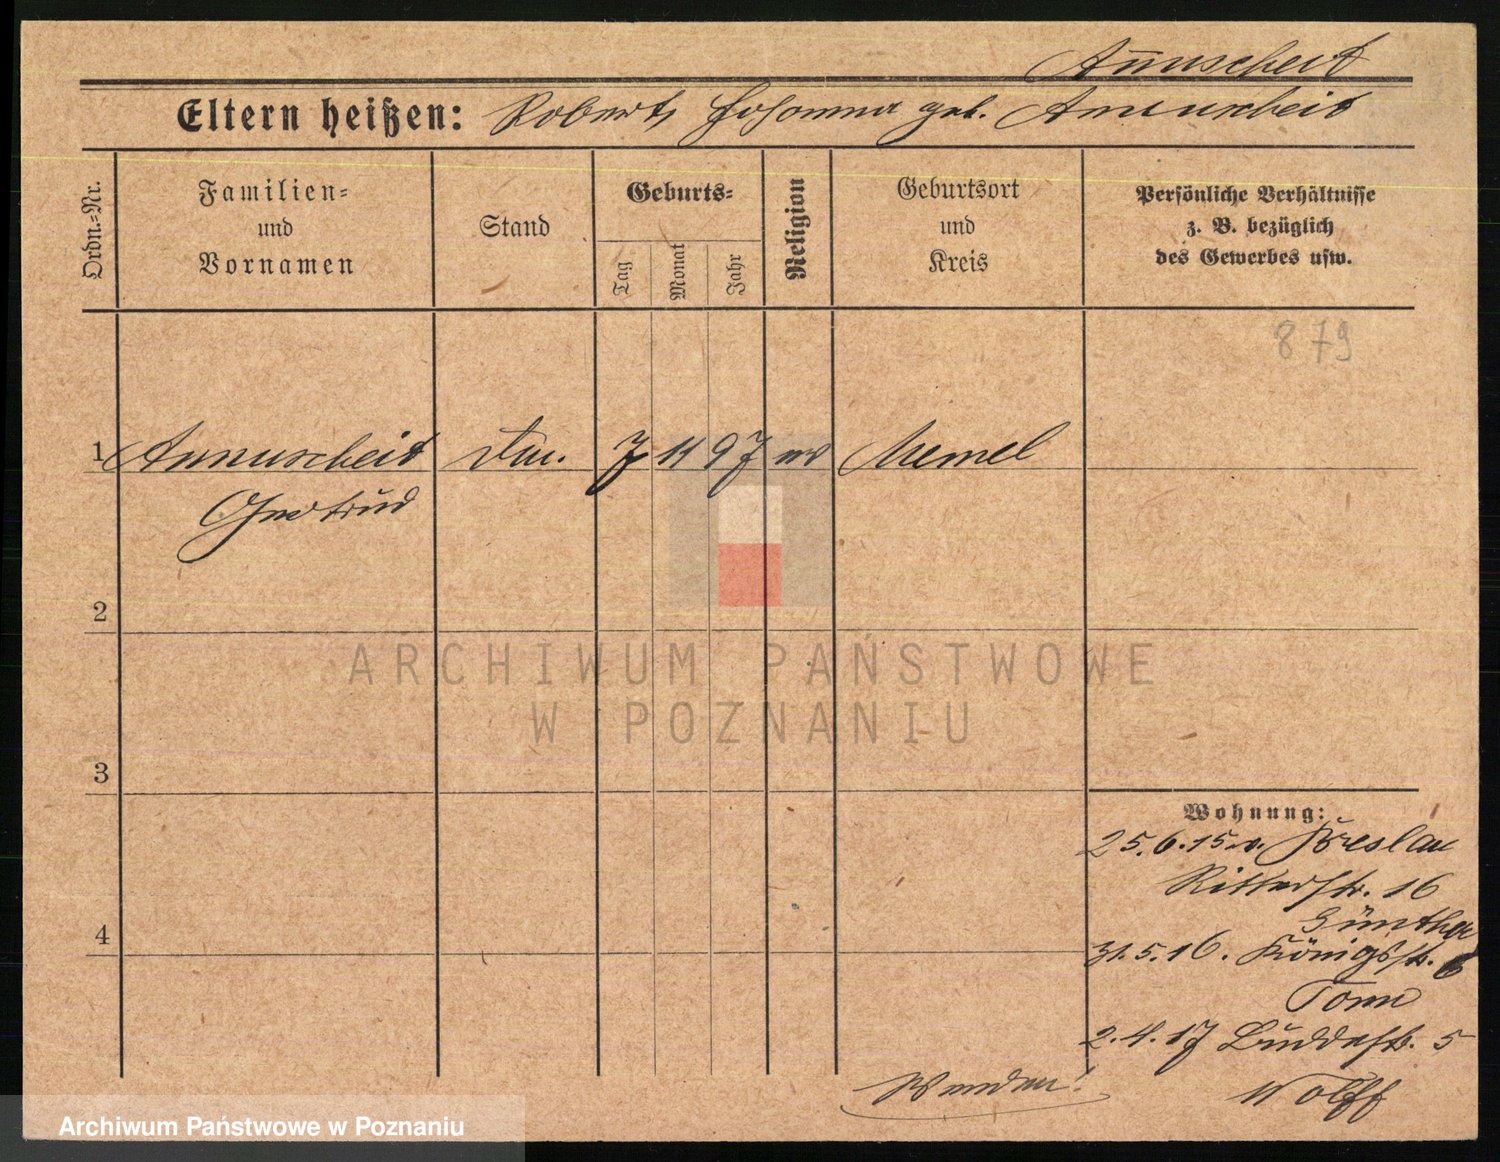 Annuscheit
Eltern heißen: Robert, Johanna geb. Annuscheit
Ordn.=Nr.
Familien=
und
Vornamen
Stand
Geburts=
Tag
Monat
Jahr
Religion
Geburtsort
und
Kreis
Persönliche Verhältnisse
z. B. bezüglich
des Gewerbes usw.
879
1 Annuscheit 7 11 97 ev Memel
Gertrud
2
ARCHIWUM PAŃSTWOWE
W POZNANIU
3
Wohnung:
25.6.15 v. Breslau
Ritterstr. 16
Günther
4
31.5.16. Königsstr. 6
Tonn
2.4.17 Buddestr. 5
Wenden!
Wolff
Archiwum Państwowe w Poznaniu